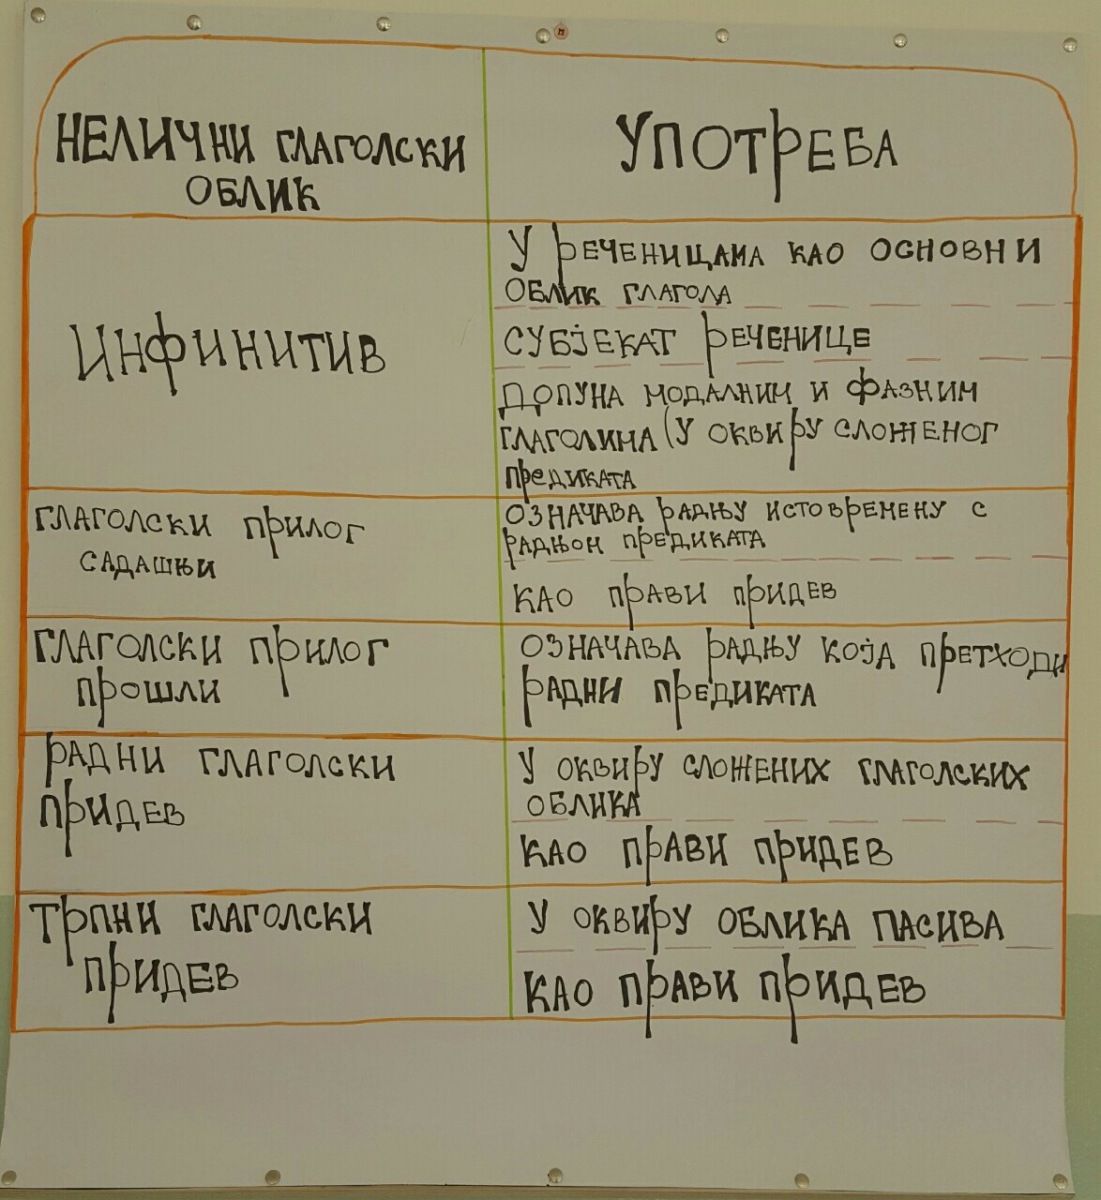 НЕЛИЧНИ ГЛАГОЛСКИ
ОБЛИК
УПОТРЕБА
ИНФИНИТИВ
У РЕЧЕНИЦАМА КАО ОСНОВНИ
ОБЛИК ГЛАГОЛА
СУБЈЕКАТ РЕЧЕНИЦЕ
ДОПУНА МОДАЛНИМ И ФАЗНИМ
ГЛАГОЛИМА (У ОКВИРУ СЛОЖЕНОГ
ПРЕДИКАТА
ГЛАГОЛСКИ ПРИЛОГ
САДАШЊИ
ОЗНАЧАВА РАДЊУ ИСТОВРЕМЕНУ С
РАДЊОМ ПРЕДИКАТА
КАО ПРАВИ ПРИДЕВ
ГЛАГОЛСКИ ПРИЛОГ
ПРОШЛИ
ОЗНАЧАВА РАДЊУ КОЈА ПРЕТХОДИ
РАДНИ ПРЕДИКАТА
РАДНИ ГЛАГОЛСКИ
ПРИДЕВ
У ОКВИРУ СЛОЖЕНИХ ГЛАГОЛСКИХ
ОБЛИКА
КАО ПРАВИ ПРИДЕВ
ТРПНИ ГЛАГОЛСКИ
ПРИДЕВ
У ОКВИРУ ОБЛИКА ПАСИВА
КАО ПРАВИ ПРИДЕВ